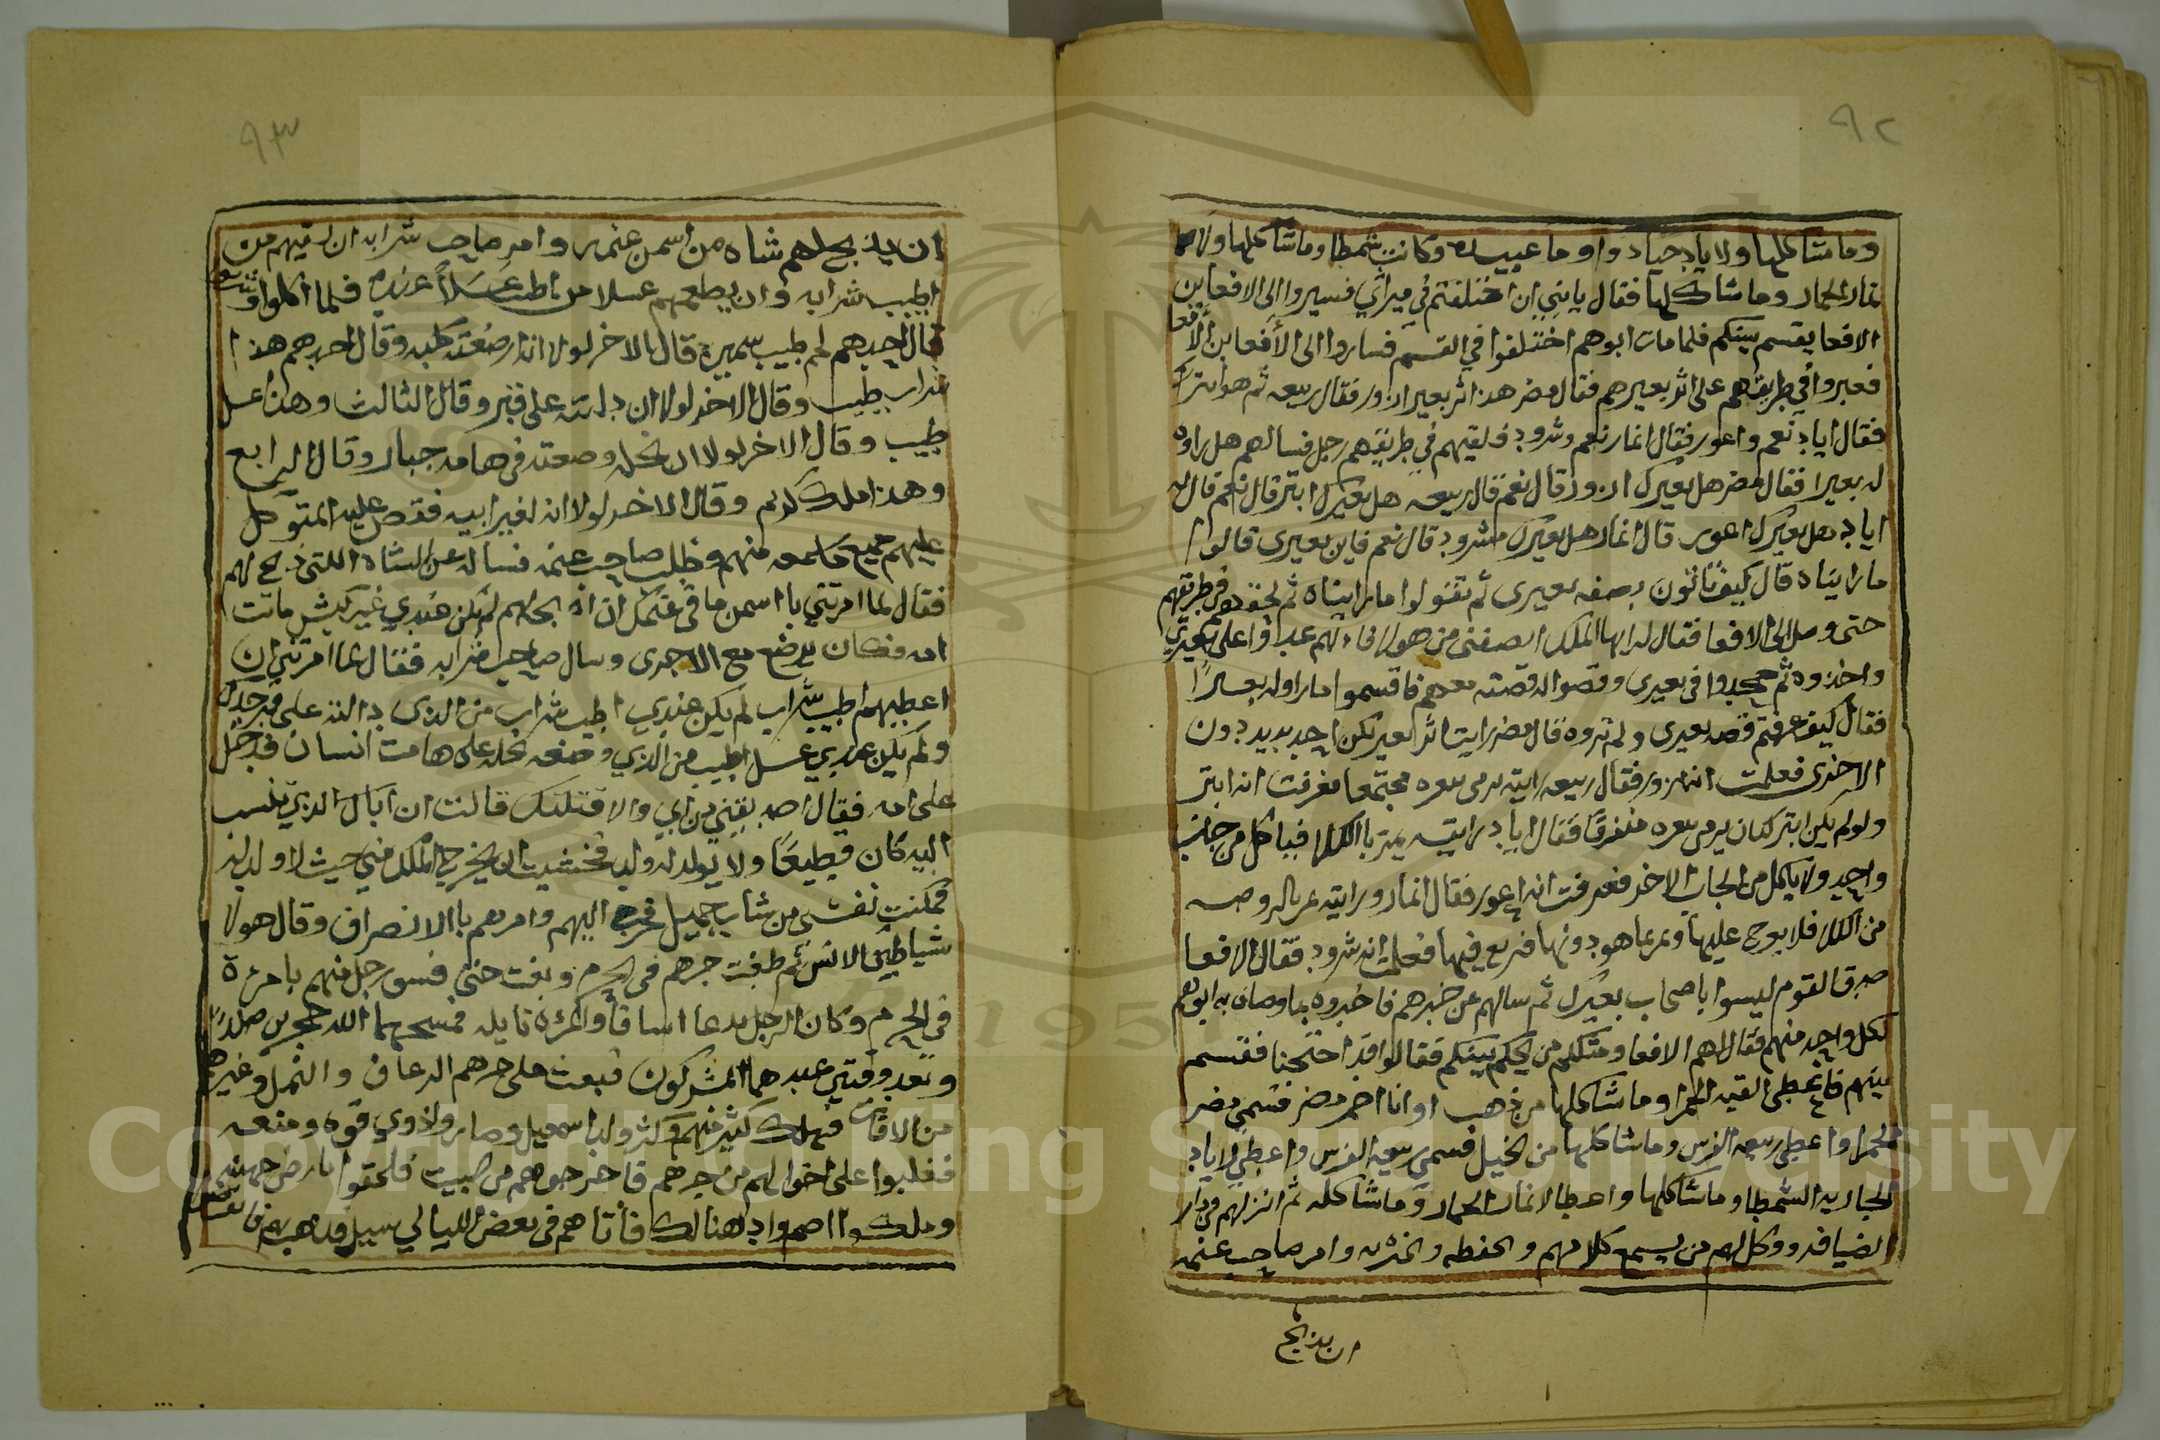 ٩٢
وما شاكلها ولاياد جياد وا وما عبيده وكانت شمطا وما شاكلها ولانمار
نمار الحمار وما شاكلها فقال يا بني ان اختلفتم في ميراثي فسيروا الى الافعا بن
الافعا يقسم بينكم فلما مات ابوهم اختلفوا في القسم فساروا الى الأفعا بن الأفعا
فعبروا في طريقهم على اثر بعيرهم فقال مضر هذا اثر بعير ازور فقال ربيعه ثم هو ابتر
فقال اياد نعم واعور فقال انمار نعم وشرود فلقيهم في طريقهم رجل فسالهم هل راوا
له بعيرا فقال مضر هل بعيرك ازور قال نعم قال ربيعه هل بعيرك ابتر قال نعم قال له
اياد هل بعيرك اعور قال انمار هل بعيرك مشرود قال نعم فاين بعيري قالوا
ما راينياه قال كيف تاتون بصفه بعيرى ثم تقولوا ما راينياه ثم لحقهم في طريقهم
حتى وصل الى الافعا فقال له ايها الملك انصفني من هولاء فانهم عدوا على بعيري
واخذوه ثم جحدوا في بعيرى وقصوا له قصته معهم فاقسموا ما راو له بعيرا
فقال كيف عرفتم قصه بعيرى ولم تروه قال مضر رايت اثر بعير نكز احد يديه دون
الاخرى فعلمت انه ازور فقال ربيعه رايته يرمى بعره مجتمعا فعرفت انه ابتر
ولو لم يكن ابتر لكان يرمى بعره متفرقا فقال اياد رايته يمر بالكلا فياكل من جانب
واحد ولا ياكل من الجانب الاخر فعرفت انه اعور فقال انمار ورايته يمر بالروضه
من الكلا فلا يوعج عليها ويمر بما هو دونها فيربع فيها فعلمت انه شرود فقال الافعا
صدق القوم ليسوا باصحاب بعيرك ثم سالهم عن خبرهم فاخبروه بما وصا به ابوهم
لكل واحد منهم فقال لهم الافعا ومثلكم من يحكم بينكم فقالوا قد احتجنا فقسم
بينهم فاعطى القبه الحمرا وما شاكلها من ذهب اوانا احمر مضر فسمي مضر
الحمرا واعطى ربيعه الفرس وما شاكلها من الخيل فسمي ربيعه الفرس واعطى لاياد
الجاريه الشمطا وما شاكلها واعطا لانمار الحمار وما شاكله ثم انزلهم في دار
الضيافه ووكل لهم من يسمع كلامهم والحفظه والخزنه وامر صاحب غنمه
ان يذبح
٩٣
ان يذبح لهم شاه من اسمن غنمه وامر صاحب شرابه ان يسقيهم من
اطيب شرابه وان يطعمهم عسلا من اطيب عسلاً عنده فلما اكلوا وشربوا
قال احدهم لحم طيب سمين قال الاخر لولا انه ارضعته كلبه وقال احدهم هذا
شراب طيب وقال الاخر لولا ان داليته على قبر وقال الثالث وهذا عسل
طيب وقال الاخر لولا ان نحله وضعته في هامه جبار وقال الرابع
وهذا ملك كريم وقال الاخر لولا انه لغير ابيه فقص عليه المتوكل
عليهم جميع ما سمعه منهم وطلب صاحب غنمه فساله عن الشاه اللتي ذبح لهم
فقال لما امرتني باسمن ما في غنمك ان اذبحه لهم لم يكن عندي غير كبش ماتت
امه فكان يرضع مع الاجرى وسال صاحب شرابه فقال لما امرتني ان
اعطيهم اطيب شراب لم يكن عندي اطيب شراب من الذي دالته على قبر جدك
ولم يكن عندي عسل اطيب من الذي وضعه نحله على هامت انسان فدخل
على امه فقال اصدقيني من ابي والا قتلتك قالت ان اباك الذي تنسب
اليه كان قطيعًا ولا يولد له ولد فخشيت ان يخرج الملك مني حيث لا ولد له
فمكنت نفسي من شاب جميل فخرج اليهم وامرهم بالانصراف وقال هولا
شياطين الانس ثم طغت جرهم في الحرم وبغت حتى فسق رجل منهم بامرءة
في الحرم وكان الرجل يدعا اسافاً والمرءه نايله فمسخهما الله حجرين صلدا
وبعد وقتين عبدهما المشركون فبعث على جرهم الرعاف والنمل وغيرهم
من الافات فهلك كثير منهم وكثر ولد اسمعيل وصاروا ذوي قوه ومنعه
فغلبوا على اخوالهم من جرهم فاخرجوهم من البيت فلحقوا بارض جهينه
وملكوا اصم واد هنالك فأتاهم في بعض الليالي سيل فذهب بهم
Copyright © King Saud University